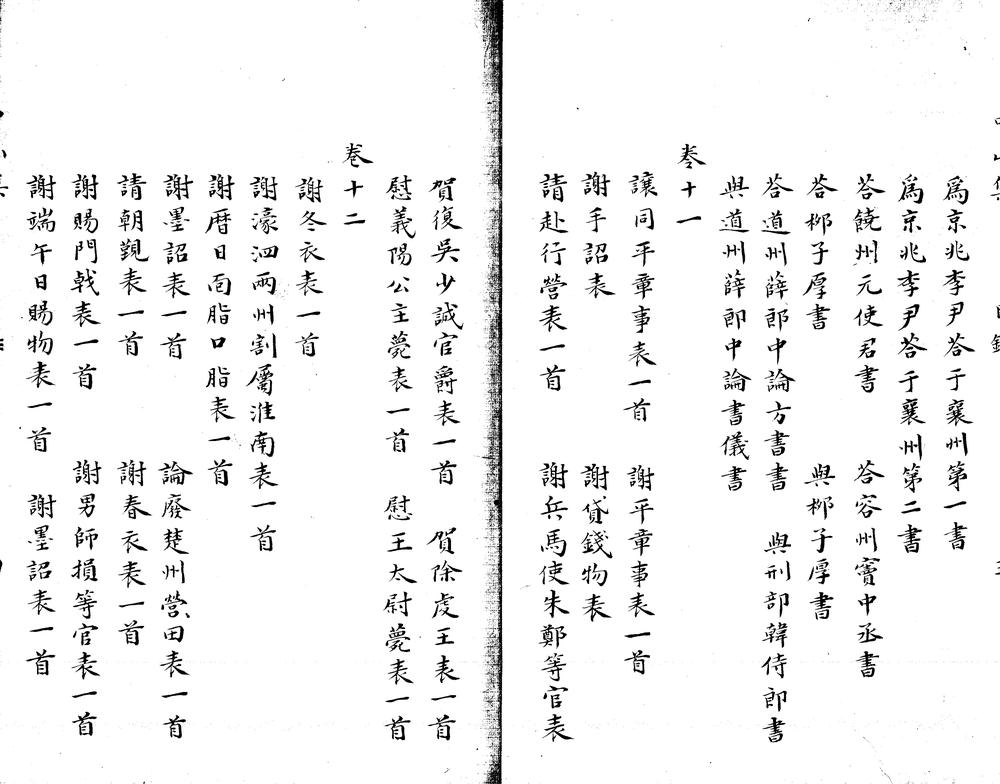 爲京兆李尹荅于襄州第一書
爲京兆李尹荅于襄州第二書
荅饒州元使君書　荅容州竇中丞書
荅栁子厚書　與栁子厚書
荅道州薛郎中論方書書　與刑部韓侍郎書
與道州薛郎中論書儀書
卷十一
讓同平章事表一首　謝平章事表一首
謝手詔表　謝貸錢物表
請赴行營表一首　謝兵馬使朱鄭等官表
賀復吳少誠官爵表一首　賀除虔王表一首
慰義陽公主薨表一首　慰王太尉薨表一首
卷十二
謝冬衣表一首
謝濠泗兩州割屬淮南表一首
謝曆日面脂口脂表一首
謝墨詔表一首　論廢楚州營田表一首
請朝覲表一首　謝春衣表一首
謝賜門戟表一首　謝男師損等官表一首
謝端午日賜物表一首　謝墨詔表一首